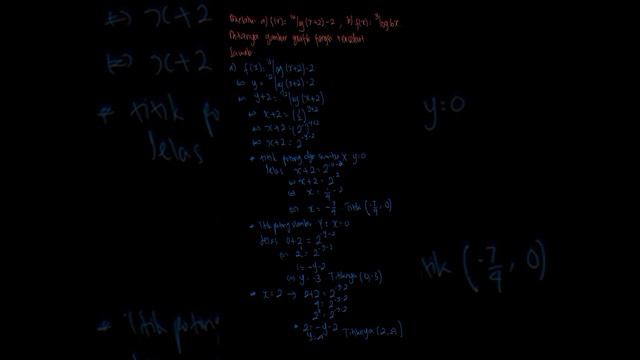 Diketahui a) f(x) = ^1/2 log (x+2) - 2 , b) f(x) = ^3 log 6x
Ditanya gambar grafik fungsi tersebut
Jawab
a) f(x) = ^1/2 log (x+2) - 2
⇔ y = ^1/2 log (x+2) - 2
⇔ y+2 = ^1/2 log (x+2)
⇔ x+2 = (1/2)^y+2
⇔ x+2 = (2^-1)^y+2
⇔ x+2 = 2^-y-2
* titik potong dgn sumbu X y=0
Jelas x+2 = 2^-0-2
⇔ x+2 = 2^-2
⇔ x = 1/4 - 2
⇔ x = -7/4 Titik (-7/4, 0)
* Titik potong sumbu Y = x=0
Jelas 0+2 = 2^-y-2
⇔ 2^1 = 2^-y-2
1 = -y-2
⇔ y = -3 Titiknya (0,-3)
* x=2 → 2+2 = 2^-y-2
4 = 2^-y-2
2^2 = 2^-y-2
2 = -y-2
y = -4 Titiknya (2,-4)
⇔ x+2
⇔ x+2
* titik po
Jelas
* Titik potong
y=0
tik (-7/4, 0)